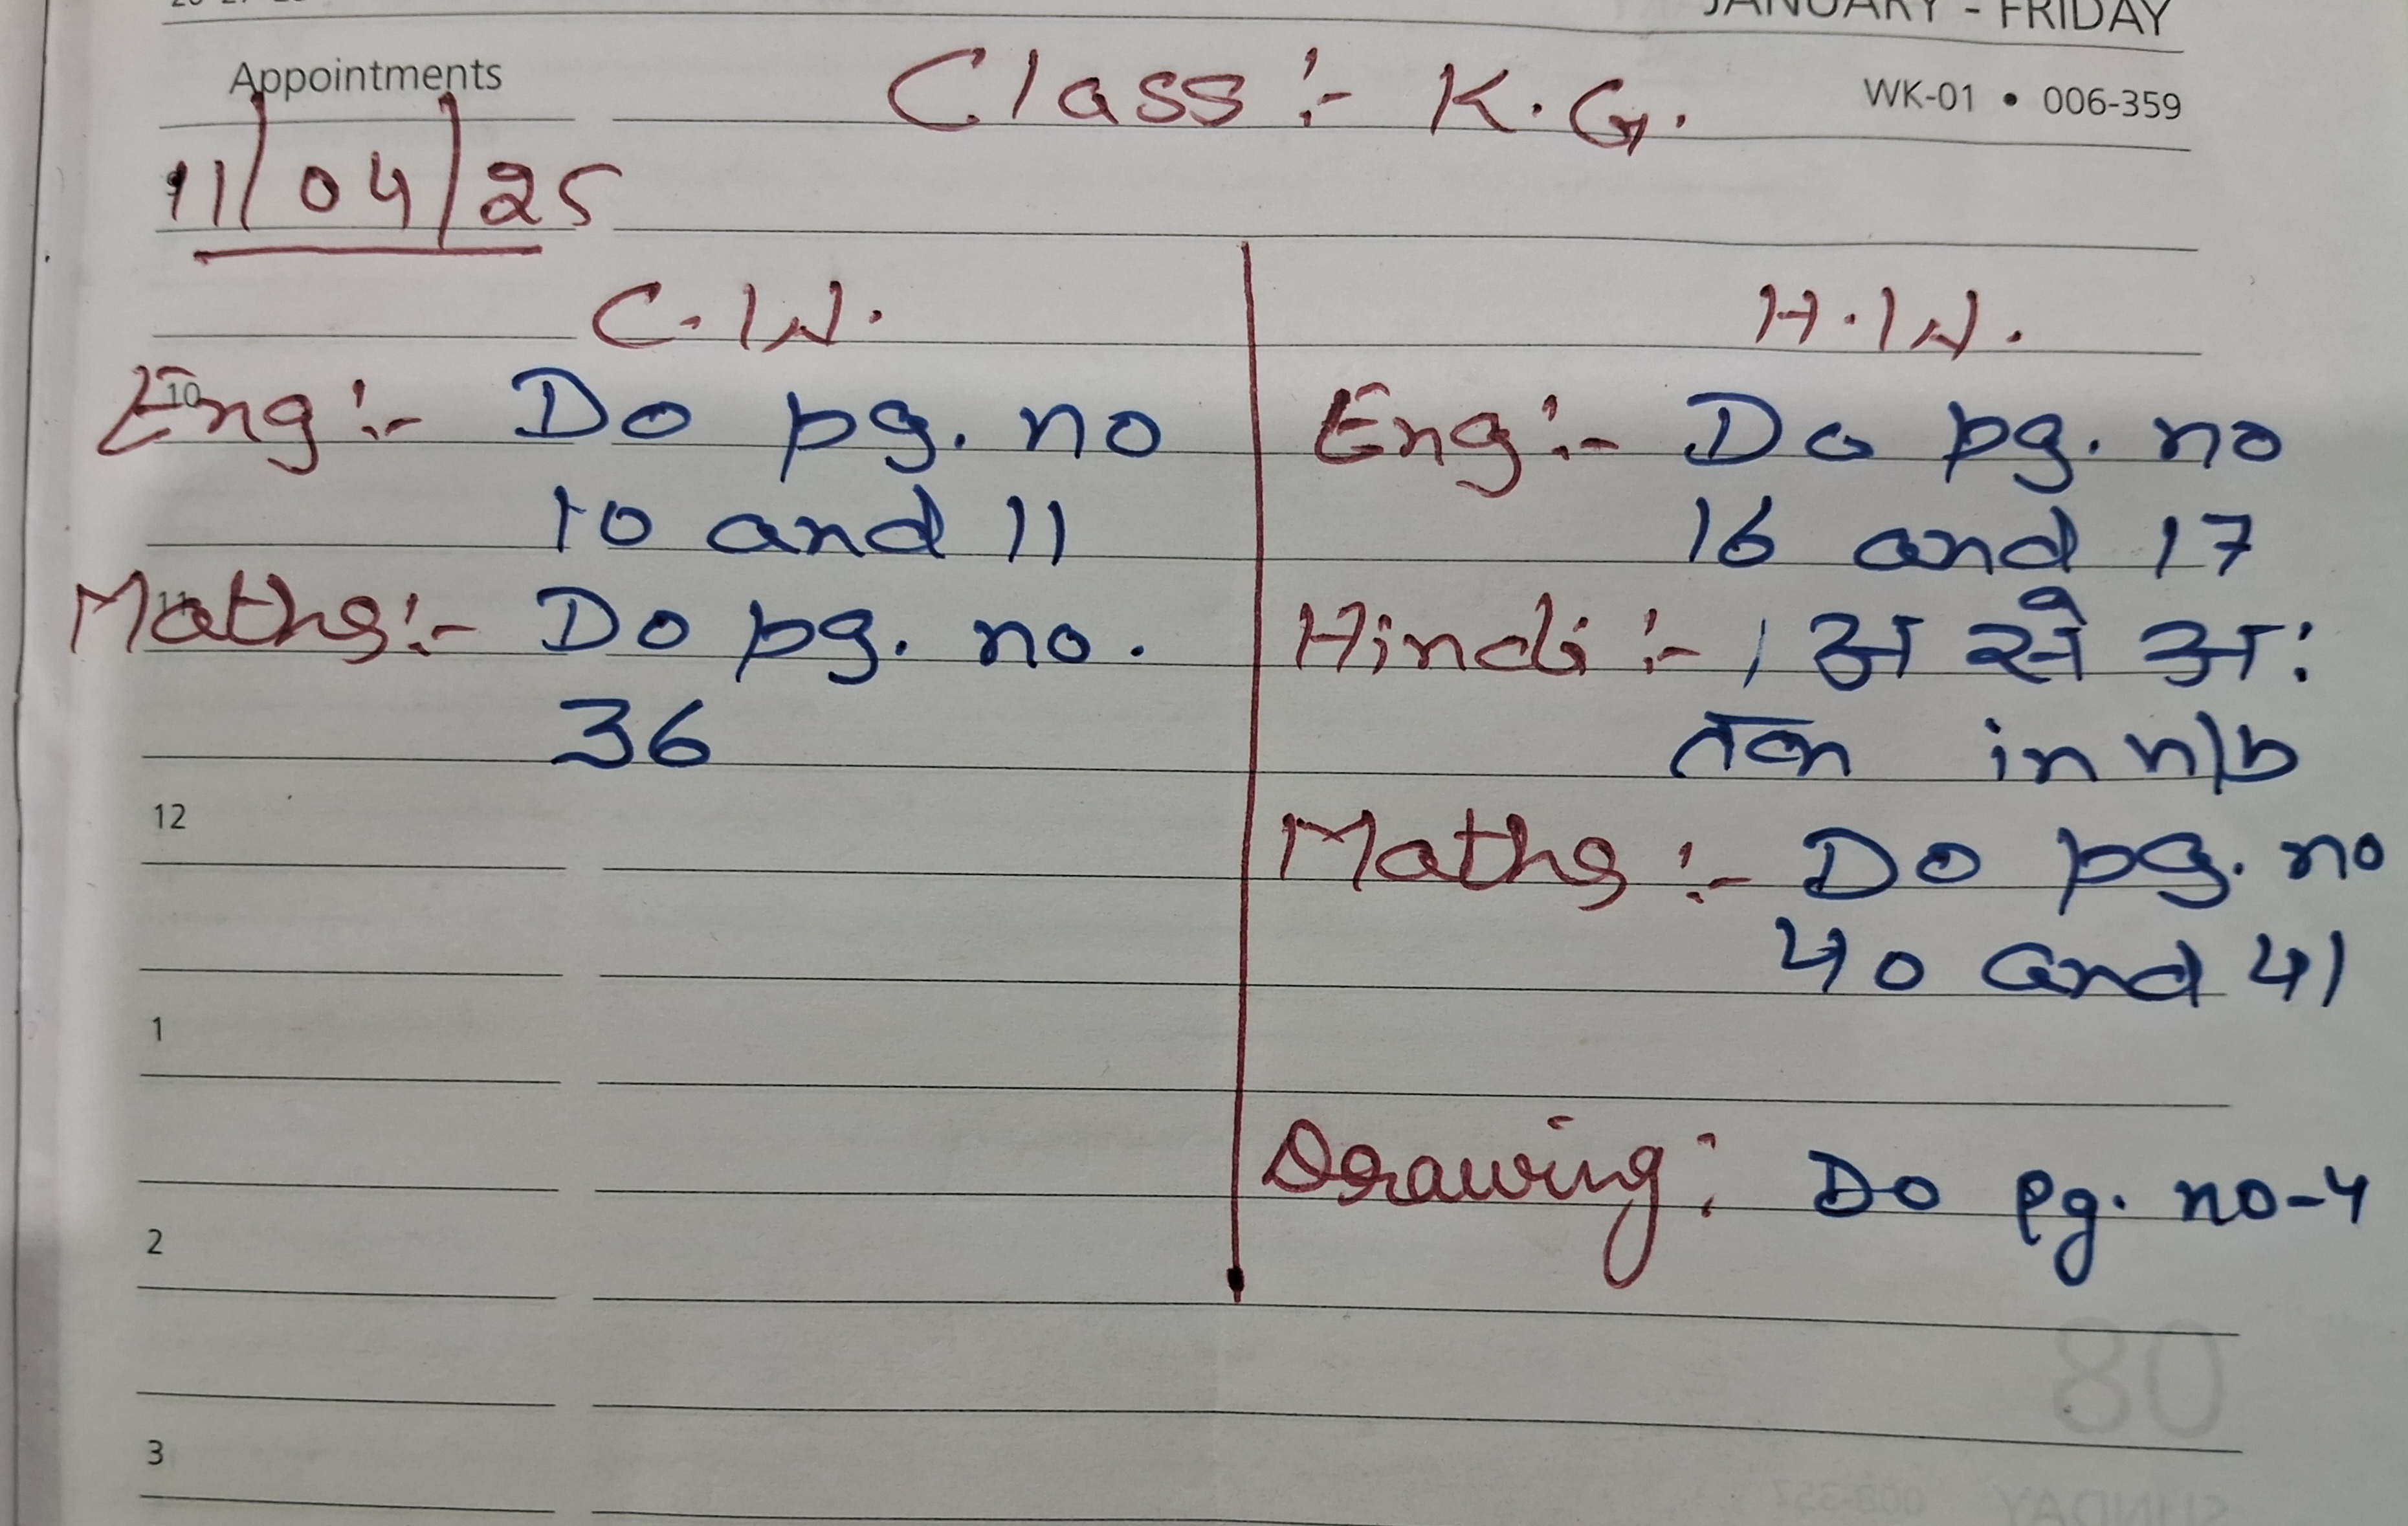 JANUARY - FRIDAY
Appointments
Class :- K.G.
WK-01 • 006-359
11/04/25
C.W.
Eng :- Do pg. no
10 and 11
Maths :- Do pg. no.
36
H.W.
Eng :- Do pg. no
16 and 17
Hindi :- । अ से अः
तक in n/b
Maths :- Do pg. no
40 and 41
Drawing : Do pg. no-4
10
11
12
1
2
3
08
SUNDAY
008-357